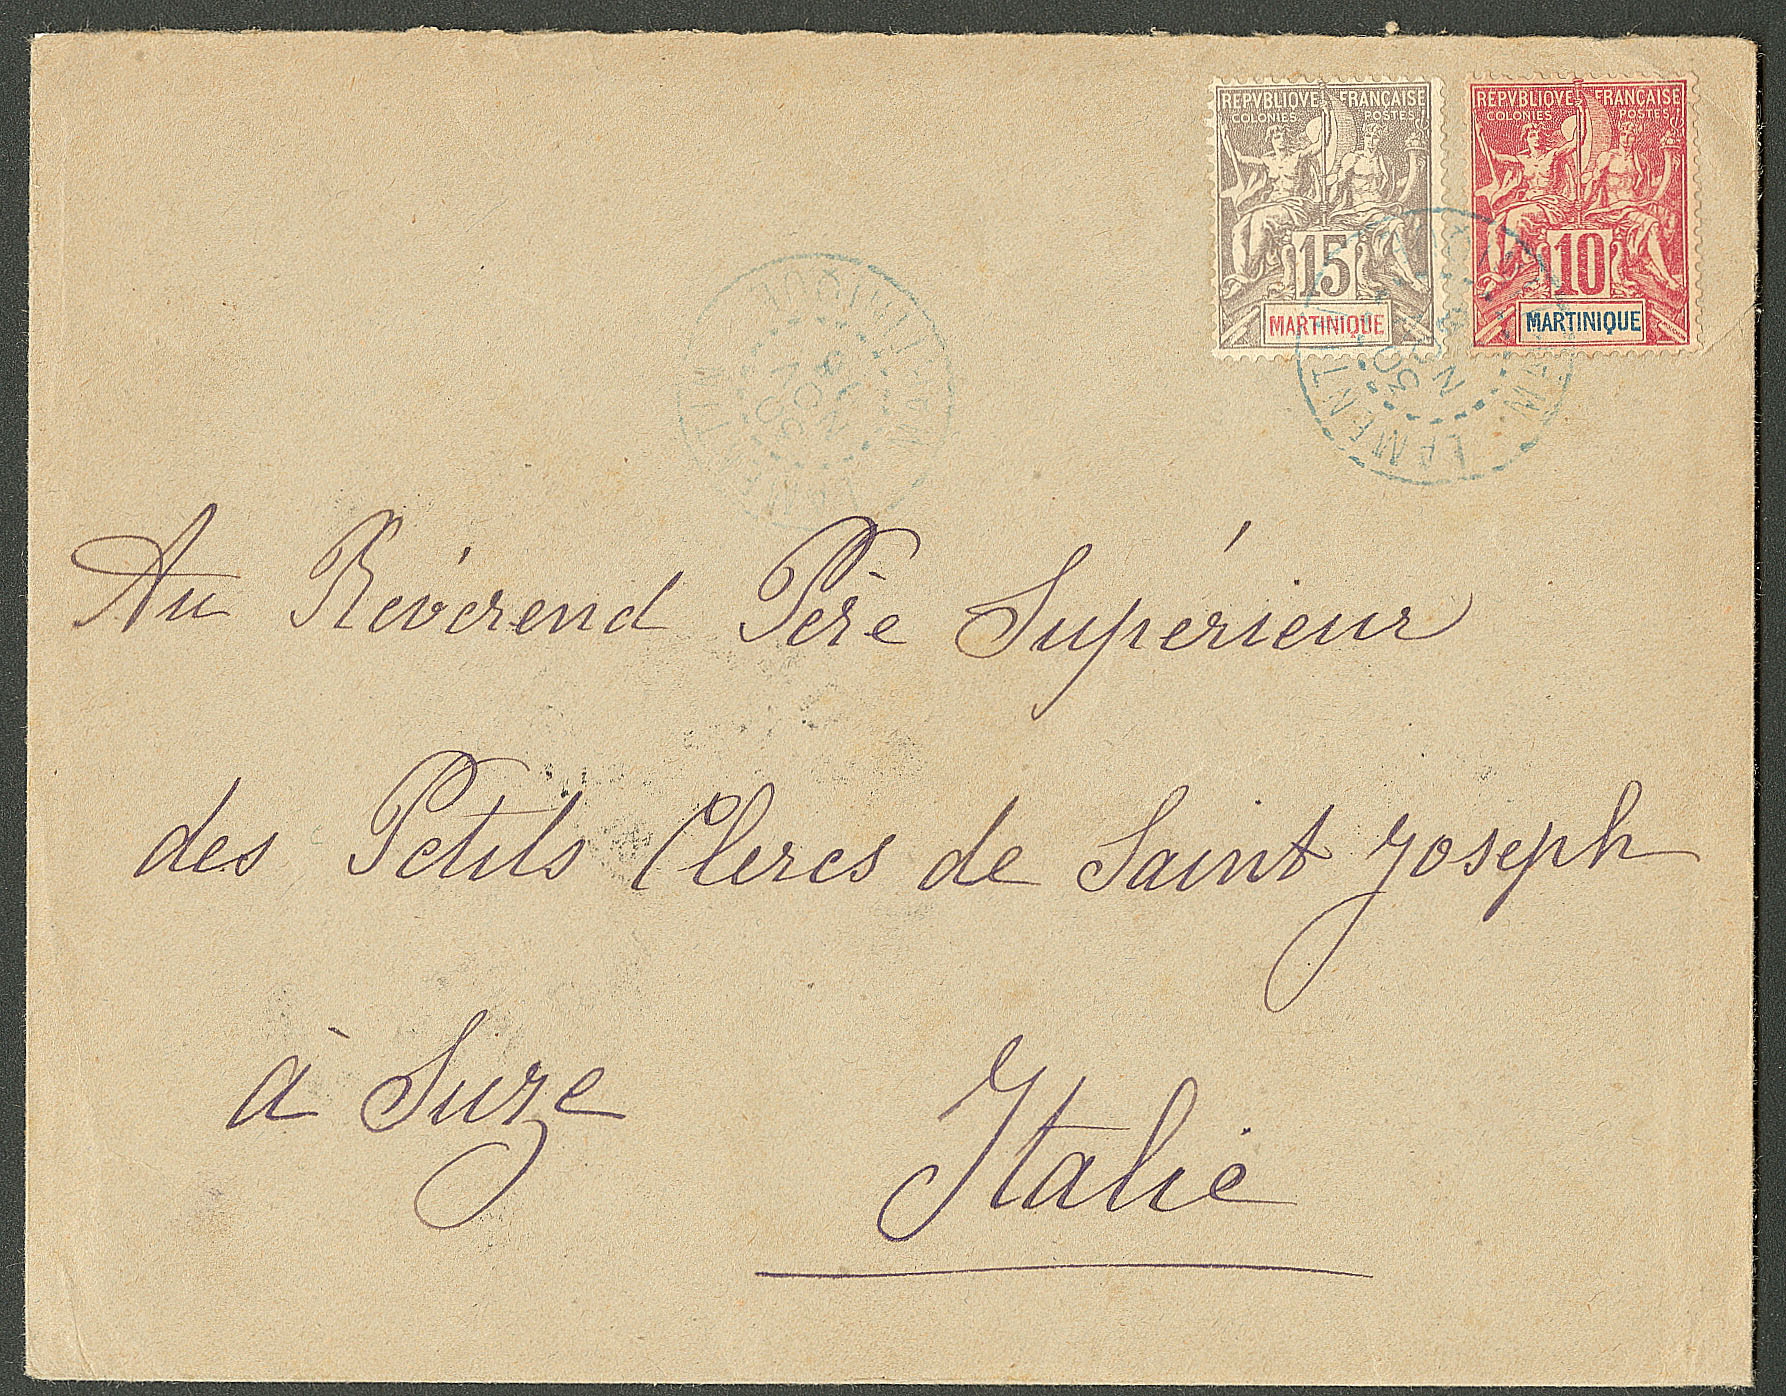 REPVBLIQVE FRANÇAISE
COLONIES POSTES
15
MARTINIQUE
REPVBLIQVE FRANÇAISE
COLONIES POSTES
10
MARTINIQUE
MARTINIQUE
LAMENTIN
30
Au Révérend Père Supérieur
des Petits Clercs de Saint Joseph
à Suze
Italie